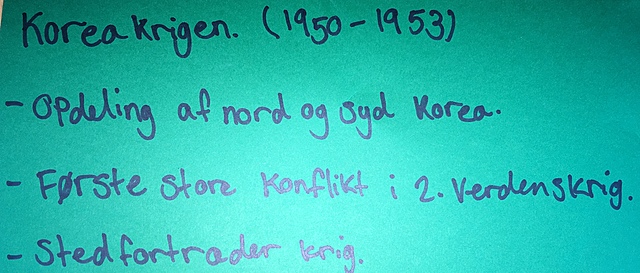 Koreakrigen. (1950-1953)
- Opdeling af nord og syd Korea.
- Første store konflikt i 2. verdenskrig.
- Stedfortræder krig.